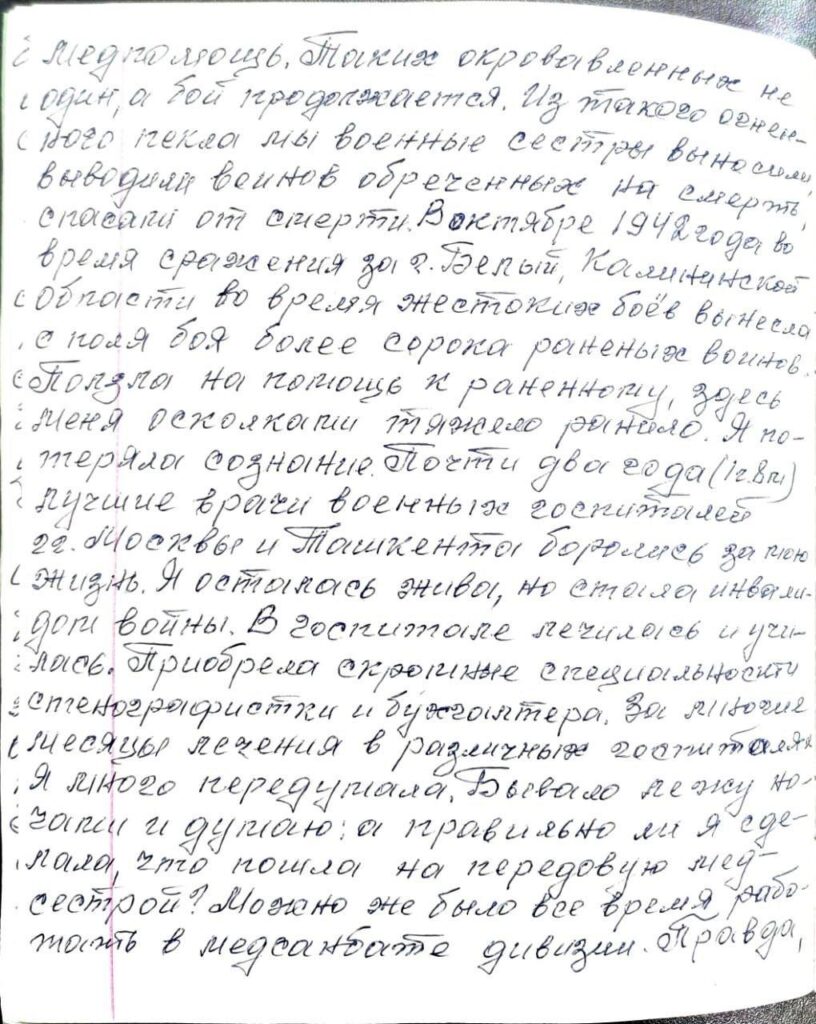 медпомощь. Таких окровавленных не
один, а бой продолжается. Из такого огнен-
ного пекла мы военные сестры выносили,
выводили воинов обреченных на смерть,
спасали от смерти. В октябре 1942 года во
время сражения за г. Белый, Калининской
области во время жестоких боёв вынесла
с поля боя более сорока раненых воинов.
Ползла на помощь к раненному, здесь
меня осколками тяжело ранило. Я по-
теряла сознание. Почти два года (1г.8м)
лучшие врачи военных госпиталей
гг. Москвы и Ташкента боролись за мою
жизнь. Я осталась жива, но стала инвали-
дом войны. В госпитале лечилась и учи-
лась. Приобрела скромные специальности
стенографистки и бухгалтера. За многие
месяцы лечения в различных госпиталях
я много передумала. Бывало лежу но-
чами и думаю: а правильно ли я сде-
лала, что пошла на передовую мед-
сестрой? Можно же было все время рабо-
тать в медсанбате дивизии. Правда,